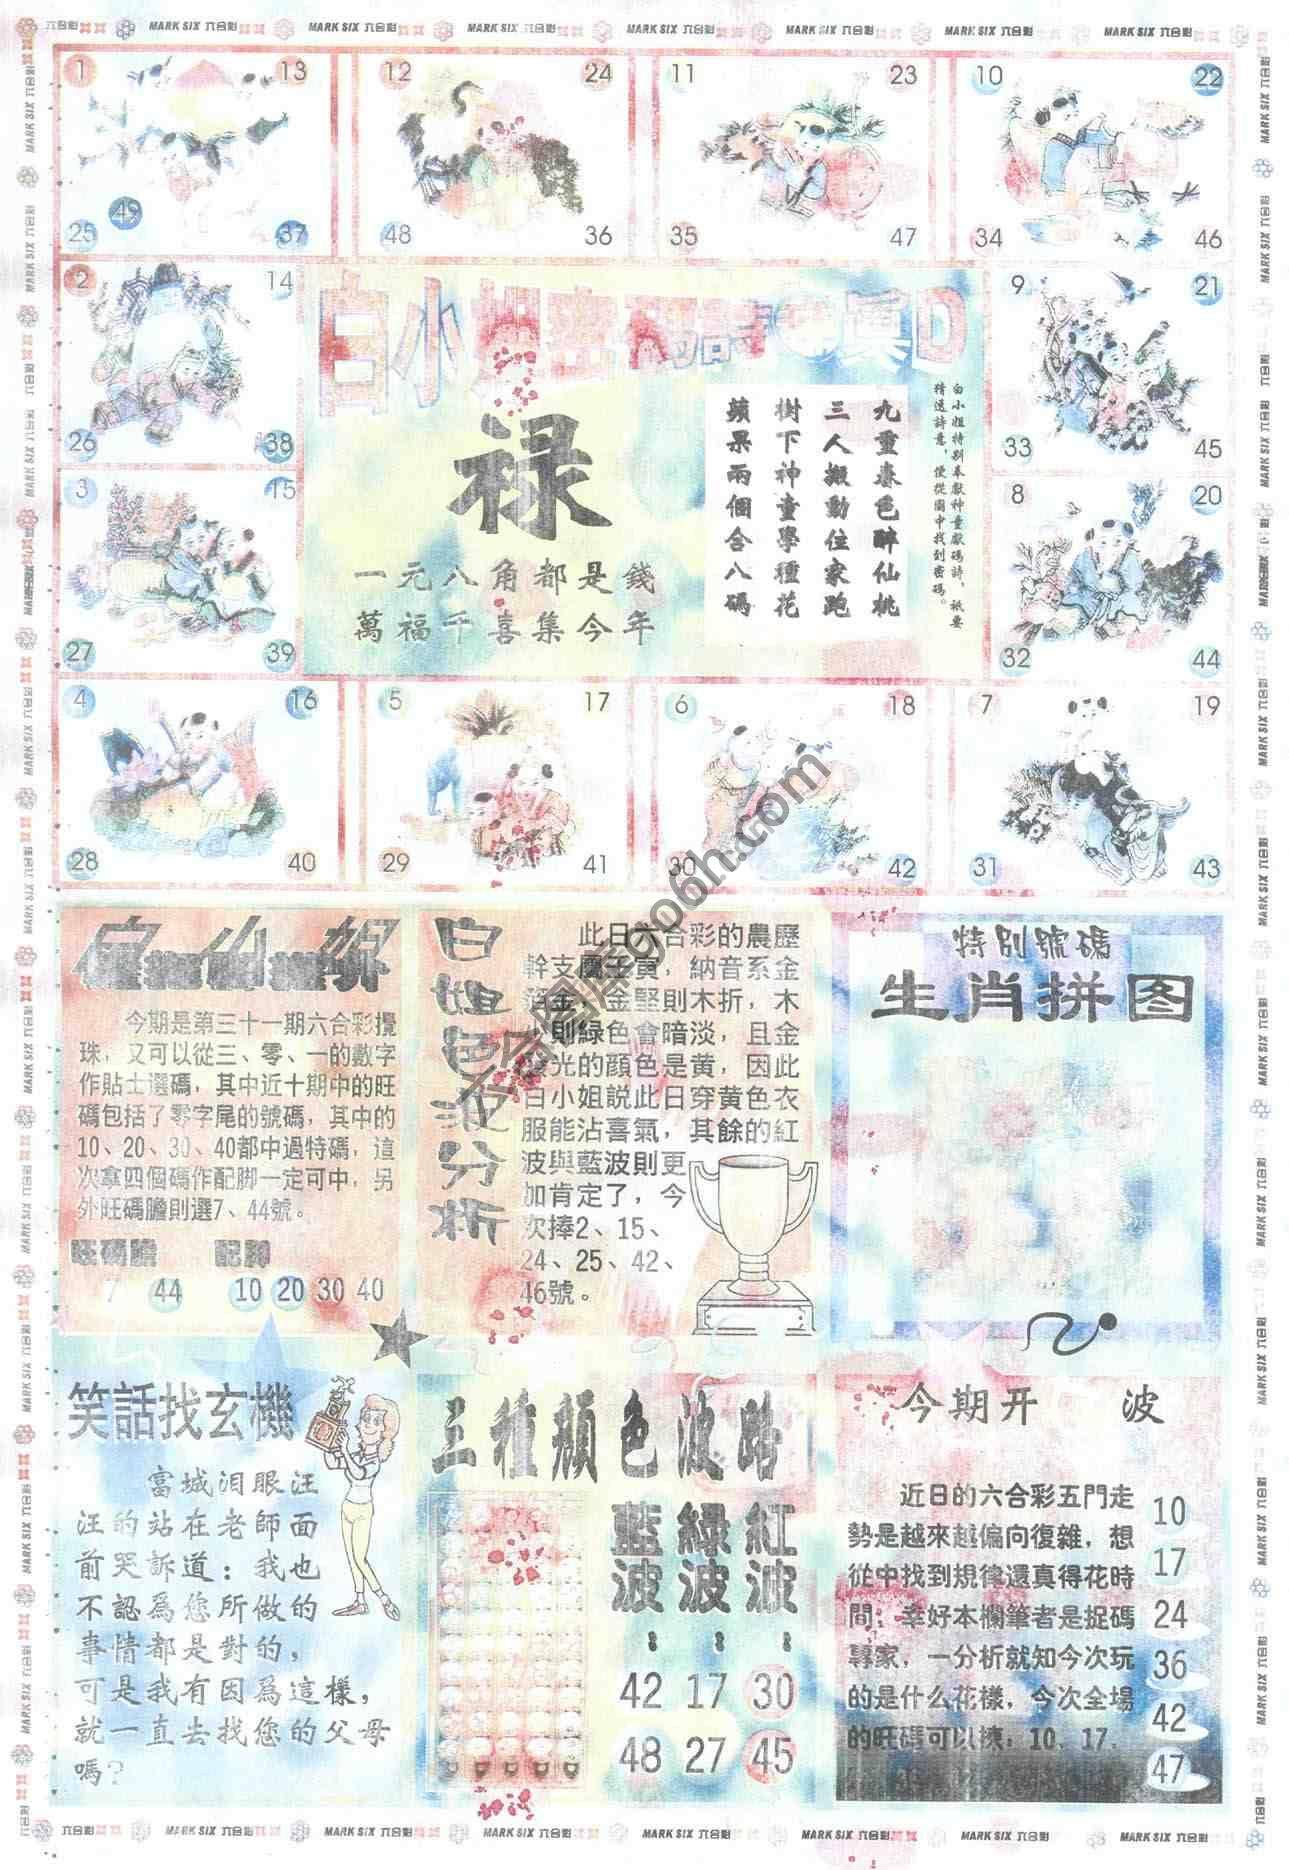 MARK SIX 六合彩
1 13
25 49 37
12 24
48 36
11 23
35 47
10 22
34 46
2 14
26 38
3 15
27 39
9 21
33 45
8 20
32 44
4 16
28 40
5 17
29 41
6 18
30 42
7 19
31 43
白小姐
禄
一元八角都是錢
萬福千喜集今年
白小姐特别奉獻神童獻碼詩，祇要
精选詩意，便從圖中找到密碼。
九重春色醉仙桃
三人搬動住家跑
樹下神童學種花
蘋果兩個合八碼
今期是第三十一期六合彩攪
珠，又可以從三、零、一的數字
作貼士選碼，其中近十期中的旺
碼包括了零字尾的號碼，其中的
10、20、30、40都中過特碼，這
次拿四個碼作配脚一定可中，另
外旺碼膽則選7、44號。
旺碼膽 配脚
7 44 10 20 30 40
白姐色波分析
此日六合彩的農歷
幹支屬壬寅，納音系金
箔金，金堅則木折，木
少則綠色會暗淡，且金
發光的顔色是黄，因此
白小姐説此日穿黄色衣
服能沾喜氣，其餘的紅
波與藍波則更
加肯定了，今
次捧2、15、
24、25、42、
46號。
特别號碼
生肖拼图
笑話找玄機
富城泪眼汪
汪的站在老師面
前哭訴道：我也
不認爲您所做的
事情都是對的，
可是我有因爲這樣，
就一直去找您的父母
嗎？
三種顔色波路
藍波： 綠波： 紅波：
42 17 30
48 27 45
今期开 波
近日的六合彩五門走
勢是越來越偏向復雜，想
從中找到規律還真得花時
間；幸好本欄筆者是捉碼
專家，一分析就知今次玩
的是什么花樣，今次全場
的旺碼可以揀：10、17、
10
17
24
36
42
47
六合图库go6h.com